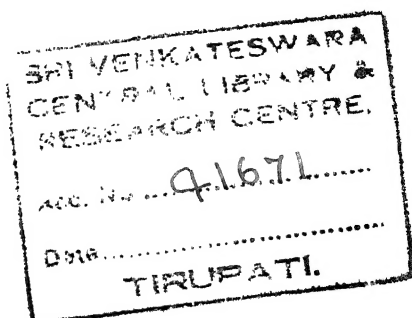 SRI VENKATESWARA
CENTRAL LIBRARY &
RESEARCH CENTRE.
Acc. No ............
Date..............................
TIRUPATI.